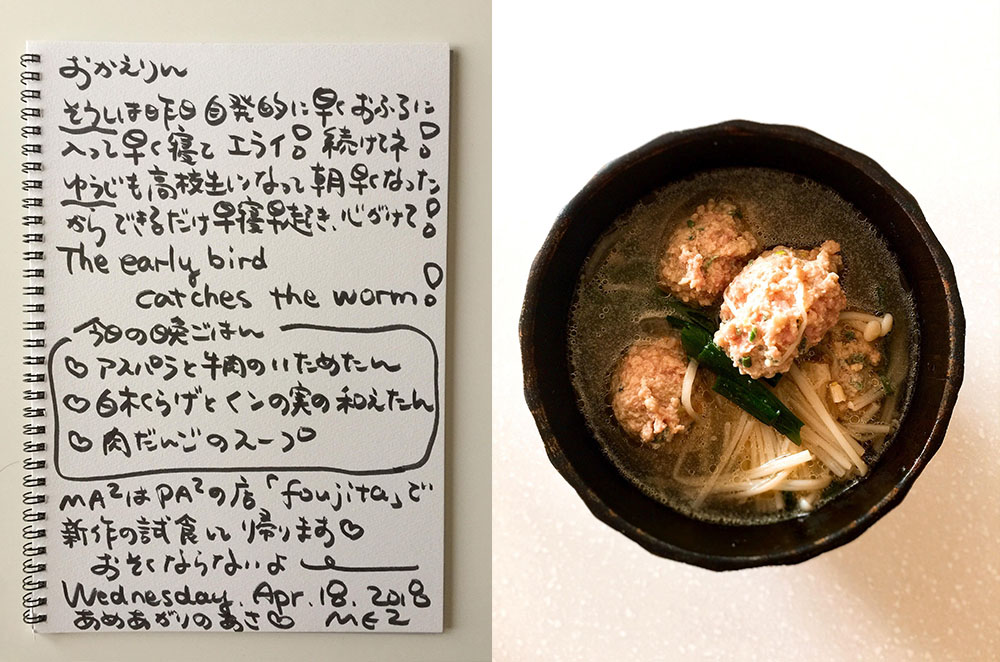 おかえりん
そうしは昨日自発的に早くおふろに
入って早く寝て エライ!! 続けてネ!!
ゆうじも高校生になって朝早くなった
からできるだけ早寝早起き、心がけて!!
The early bird
catches the worm!!
今日の晩ごはん
♡アスパラと牛肉のいためたん
♡白木くらげとクコの実の和えたん
♡肉だんごのスープ
MA²はPA²の店「foujita」で
新作の試食して帰ります♡
おそくならないよ
Wednesday. Apr. 18. 2018
あめあがりのあさ♡ ME2